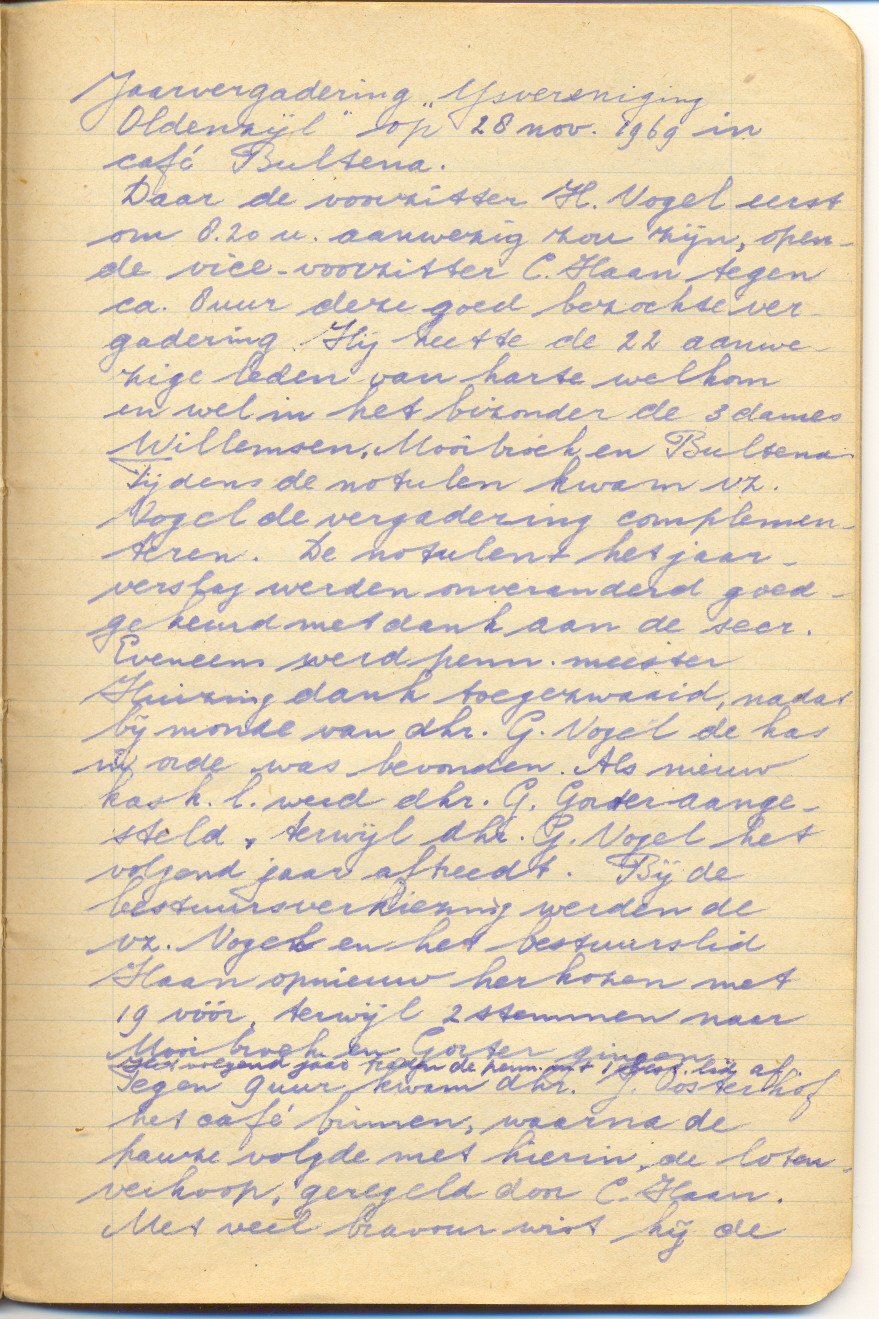 Jaarvergadering „IJsvereniging
Oldenzijl" op 28 nov. 1969 in
café Bultena.
Daar de voorzitter H. Vogel eerst
om 8.20 u. aanwezig zou zijn, open-
de vice-voorzitter C. Haan tegen
ca. 8 uur deze goed bezochte ver-
gadering. Hij heette de 22 aanwe-
zige leden van harte welkom
en wel in het bizonder de 3 dames
Willemsen, Mooibroek en Bultena.
Tijdens de notulen kwam vz.
Vogel de vergadering complemen-
teren. De notulen + het jaar-
verslag werden onveranderd goed-
gekeurd met dank aan de secr.
Eveneens werd penn. meester
Huizing dank toegezwaaid, nadat
bij monde van dhr. G. Vogel de kas
in orde was bevonden. Als nieuw
kask. l. werd dhr. G. Gorter aange-
steld, terwijl dhr. G. Vogel het
volgend jaar aftreedt. Bij de
bestuursverkiezing werden de
vz. Vogel en het bestuurslid
Haan opnieuw herkozen met
19 vóór, terwijl 2 stemmen naar
Mooibroek en Gorter gingen.
Het volgend jaar treden de penn. met 1 best. lid af.
Tegen 9 uur kwam dhr. J. Oosterhof
het café binnen, waarna de
pauze volgde met hierin de loten-
verkoop, geregeld door C. Haan.
Met veel bravour wist hij de